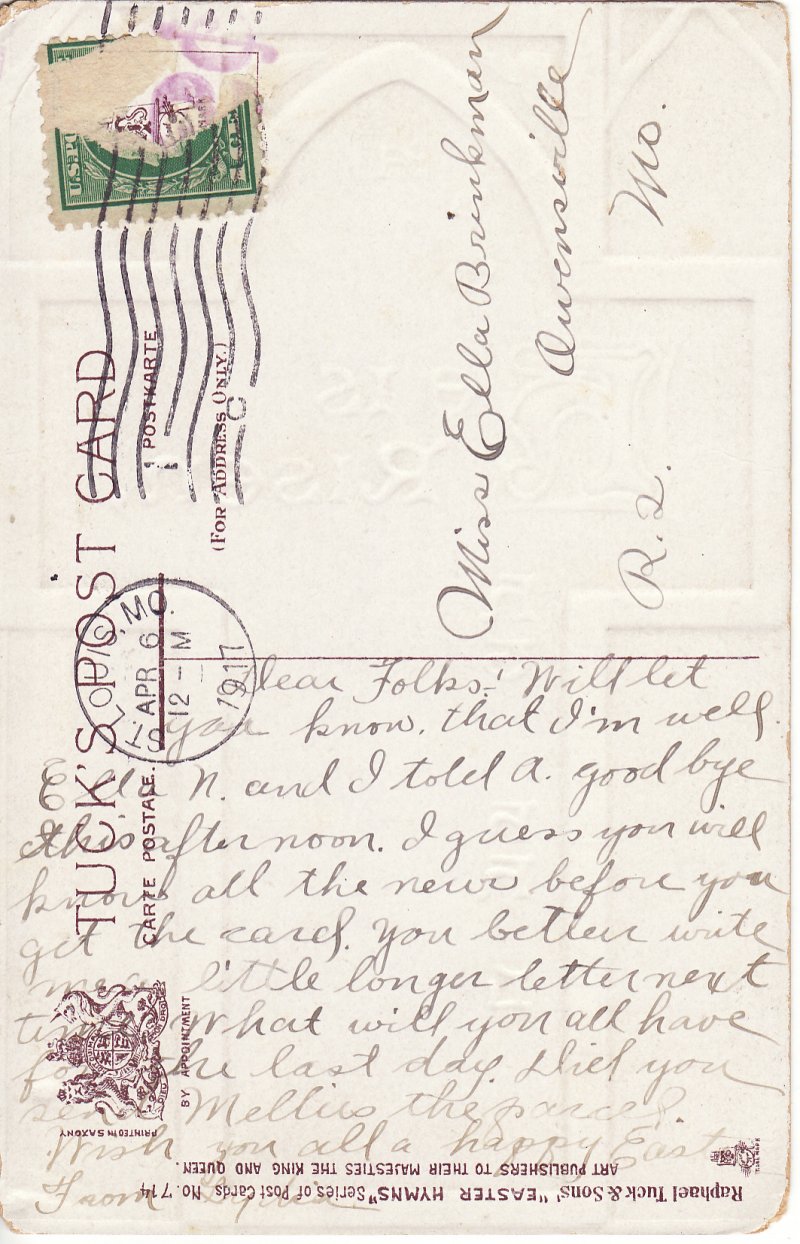 TUCK'S POST CARD
CARTE POSTALE.
POSTKARTE
(FOR ADDRESS ONLY.)
BY APPOINTMENT
PRINTED IN SAXONY
U.S. PO
ST. LOUIS, MO.
APR 6
12 - M
1917
C
Miss Ella Brinkman
Owensville
R. 2. Mo.
Dear Folks! Will let
you know that I'm well.
Ella N. and I told A. good bye
this afternoon. I guess you will
know all the news before you
get the card. You better write
me a little longer letter next
time. What will you all have
for the last day. Did you
send Mellies the parcel.
Wish you all a happy East
From Lydia
Raphael Tuck & Sons' "EASTER HYMNS" Series of Post Cards No. 714
ART PUBLISHERS TO THEIR MAJESTIES THE KING AND QUEEN.